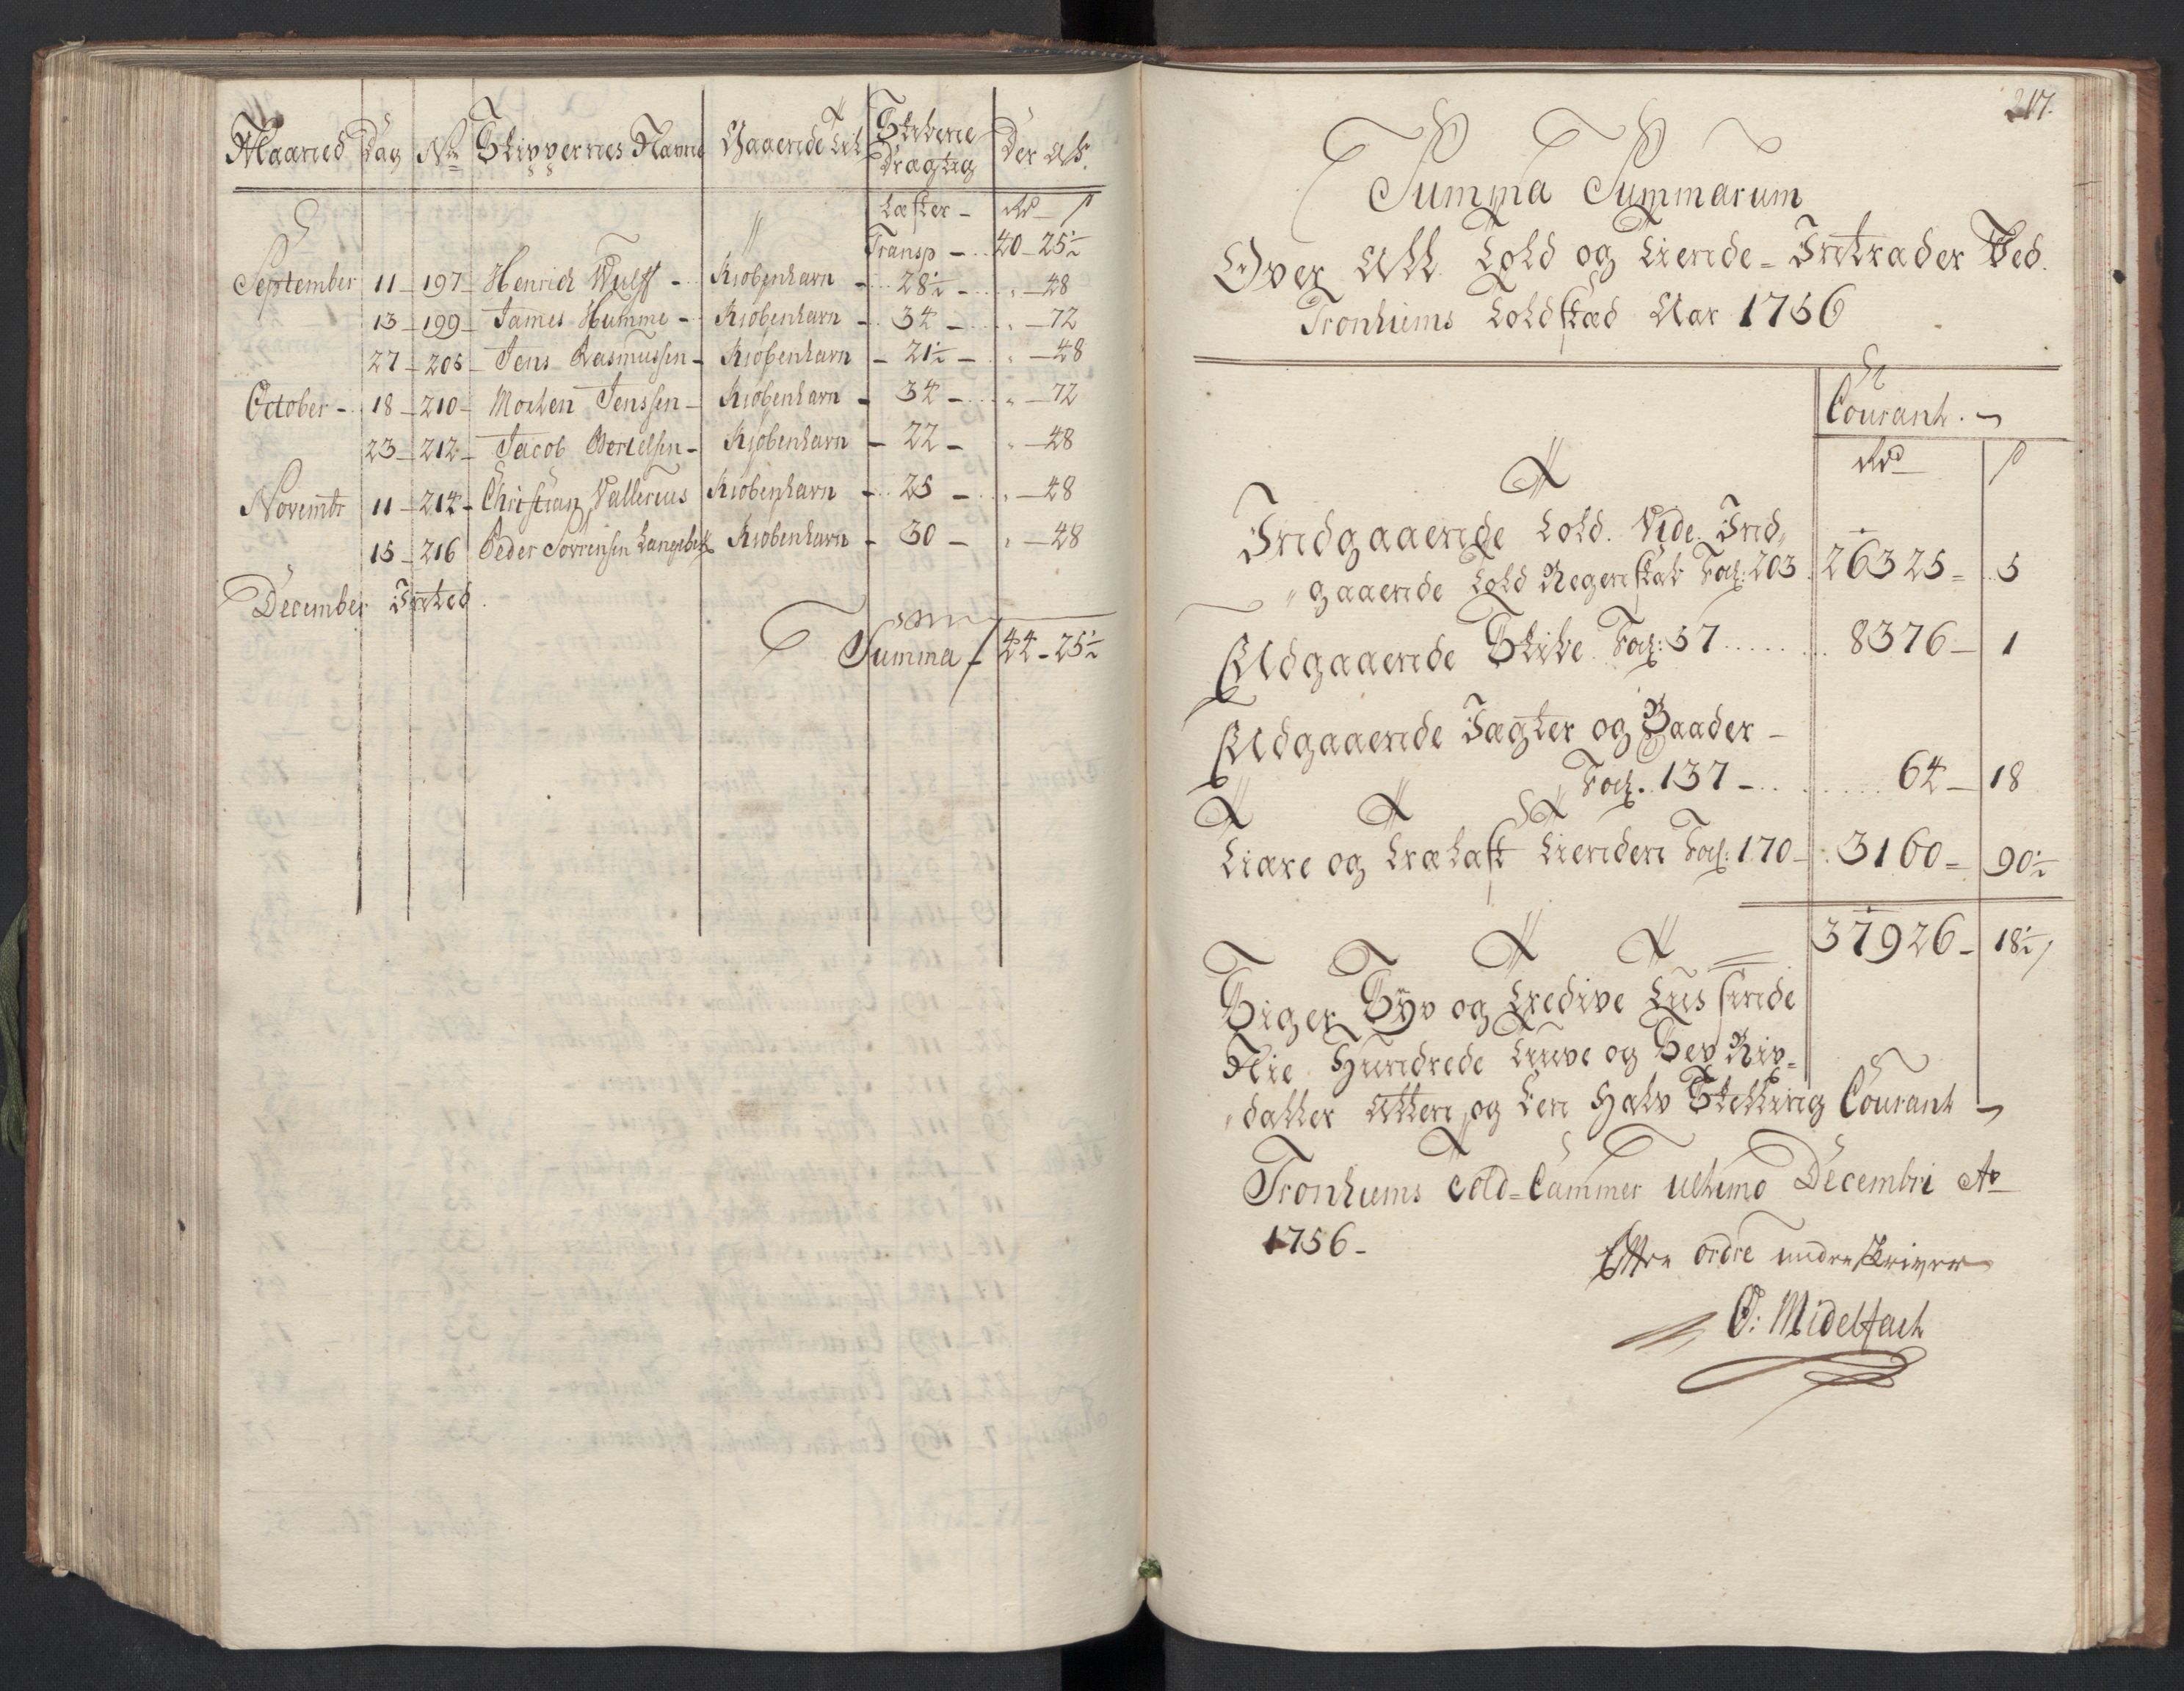 Maaned Dag No Skippernes Navne Gaaende til Skibene Dragtig Der Af.
Læster - Rd - s
Transp - 40 - 25½
September 11 - 197 - Henrich Wulff - Kiøbenhavn - 28½ - „ - 48
13 - 199 - James Humme - Kiøbenhavn - 34 - „ - 72
27 - 205 - Jens Rasmussen - Kiøbenhavn - 21½ - „ - 48
October - 18 - 210 - Morten Jenssen - Kiøbenhavn - 34 - „ - 72
23 - 212 - Jacob Bertelsen - Kiøbenhavn - 22 - „ - 48
Novembr 11 - 214 - Christian Vallerius Kiøbenhavn - 25 - „ - 48
15 - 216 Peder Sørrensen Kiøbenhavn - 30 - „ - 48
December Intet.
Summa - 44 - 25½
217.
Summa Summarum
Over All Told og Tiende-Intrader Ved
Tronhiems Toldstæd Aar 1756
Courant.
Rd s
Indgaaende Told. Vide. Ind„
„gaaende Told Regenskab Fol: 203. 26325 = 5
Udgaaende Skibe Fol: 57 8376 - 1
Udgaaende Jægter og Baader -
Fol. 137 - 64 - 18
Tiære og Trælast Tienden Fol: 170 - 3160 = 90½
37926 - 18½
Siger Syv og Tredive Tussinde
Nie Hundrede Tiuve og Sex Rix=
„daller Atten og Een Halv Skilling Courant
Tronhiems Told=Cammer ultimo Decembri Ao
1756 -
Efter ordre underskriver
O: Midelfart